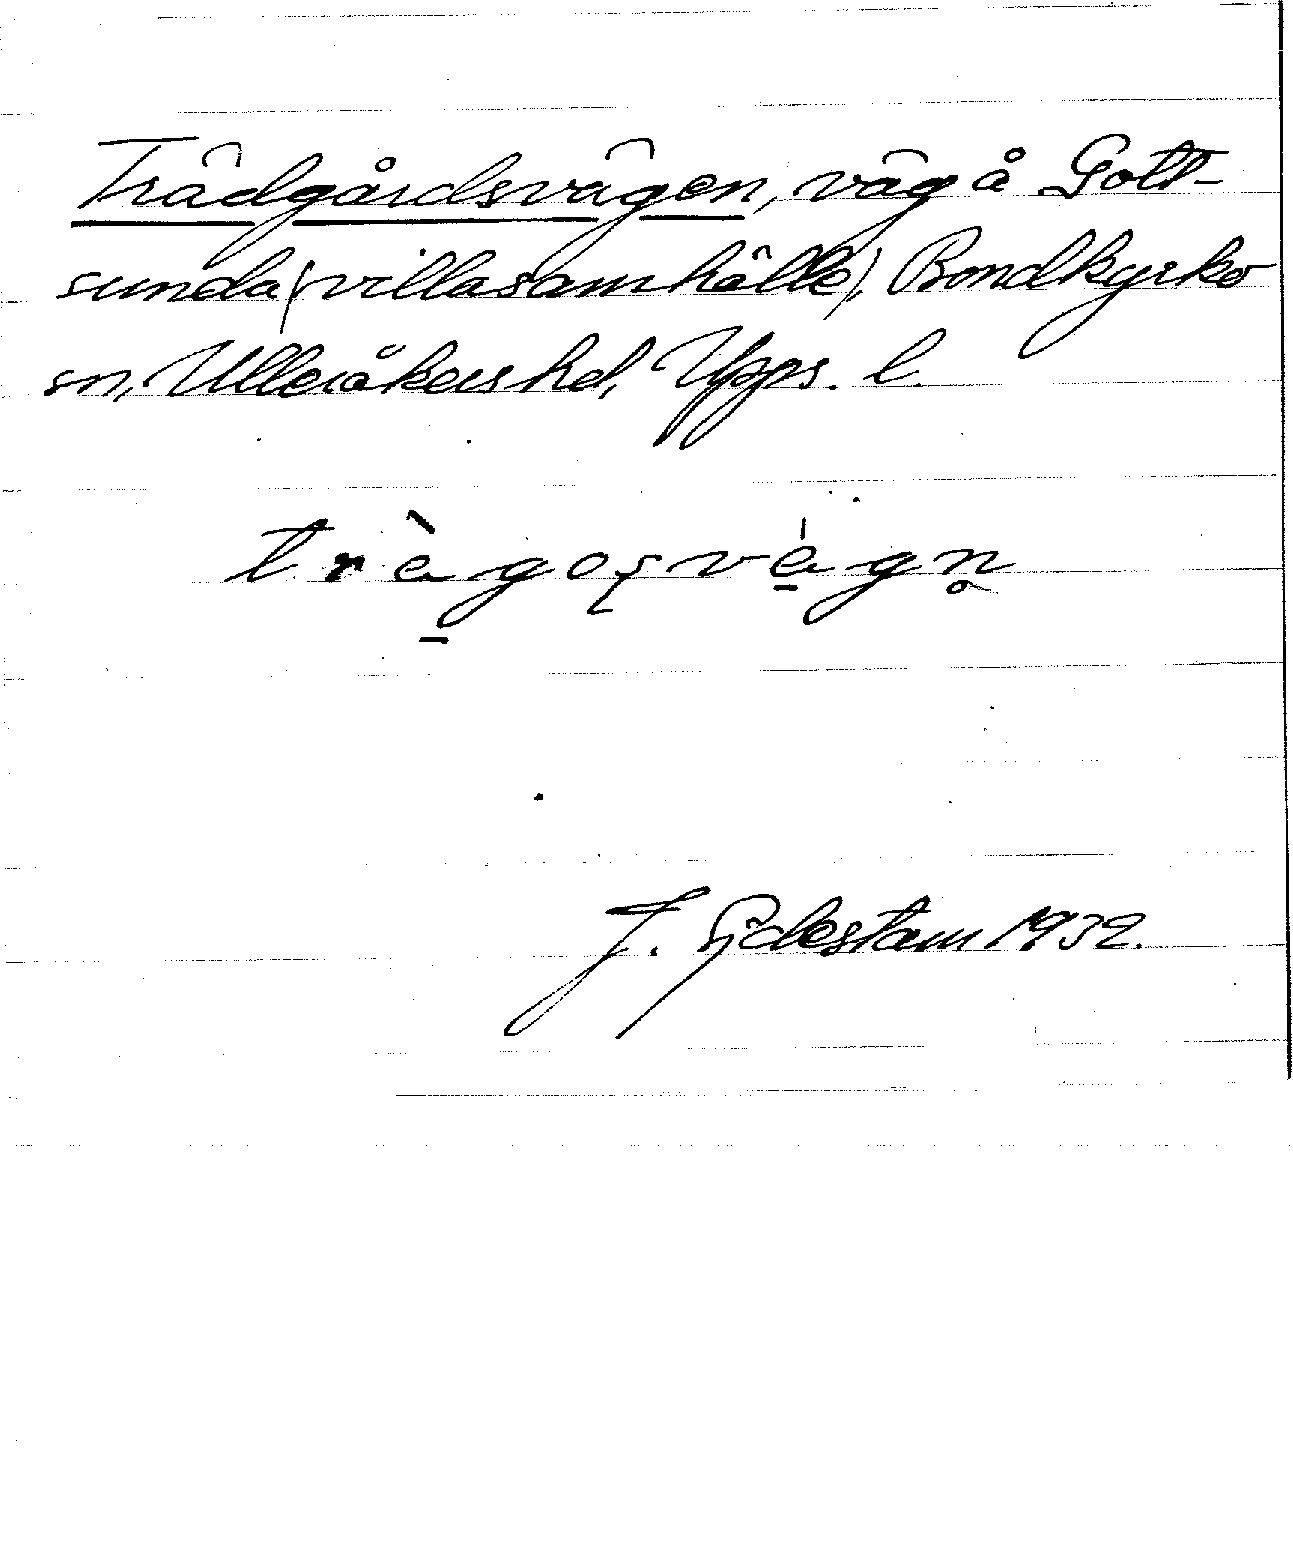 Trädgårdsvägen, väg å Gott-
sunda (villasamhälle), Bondkyrko
sn, Ulleråkers hd, Upps. l.
trägoṣvägn̥
J. Gidestam 1932.